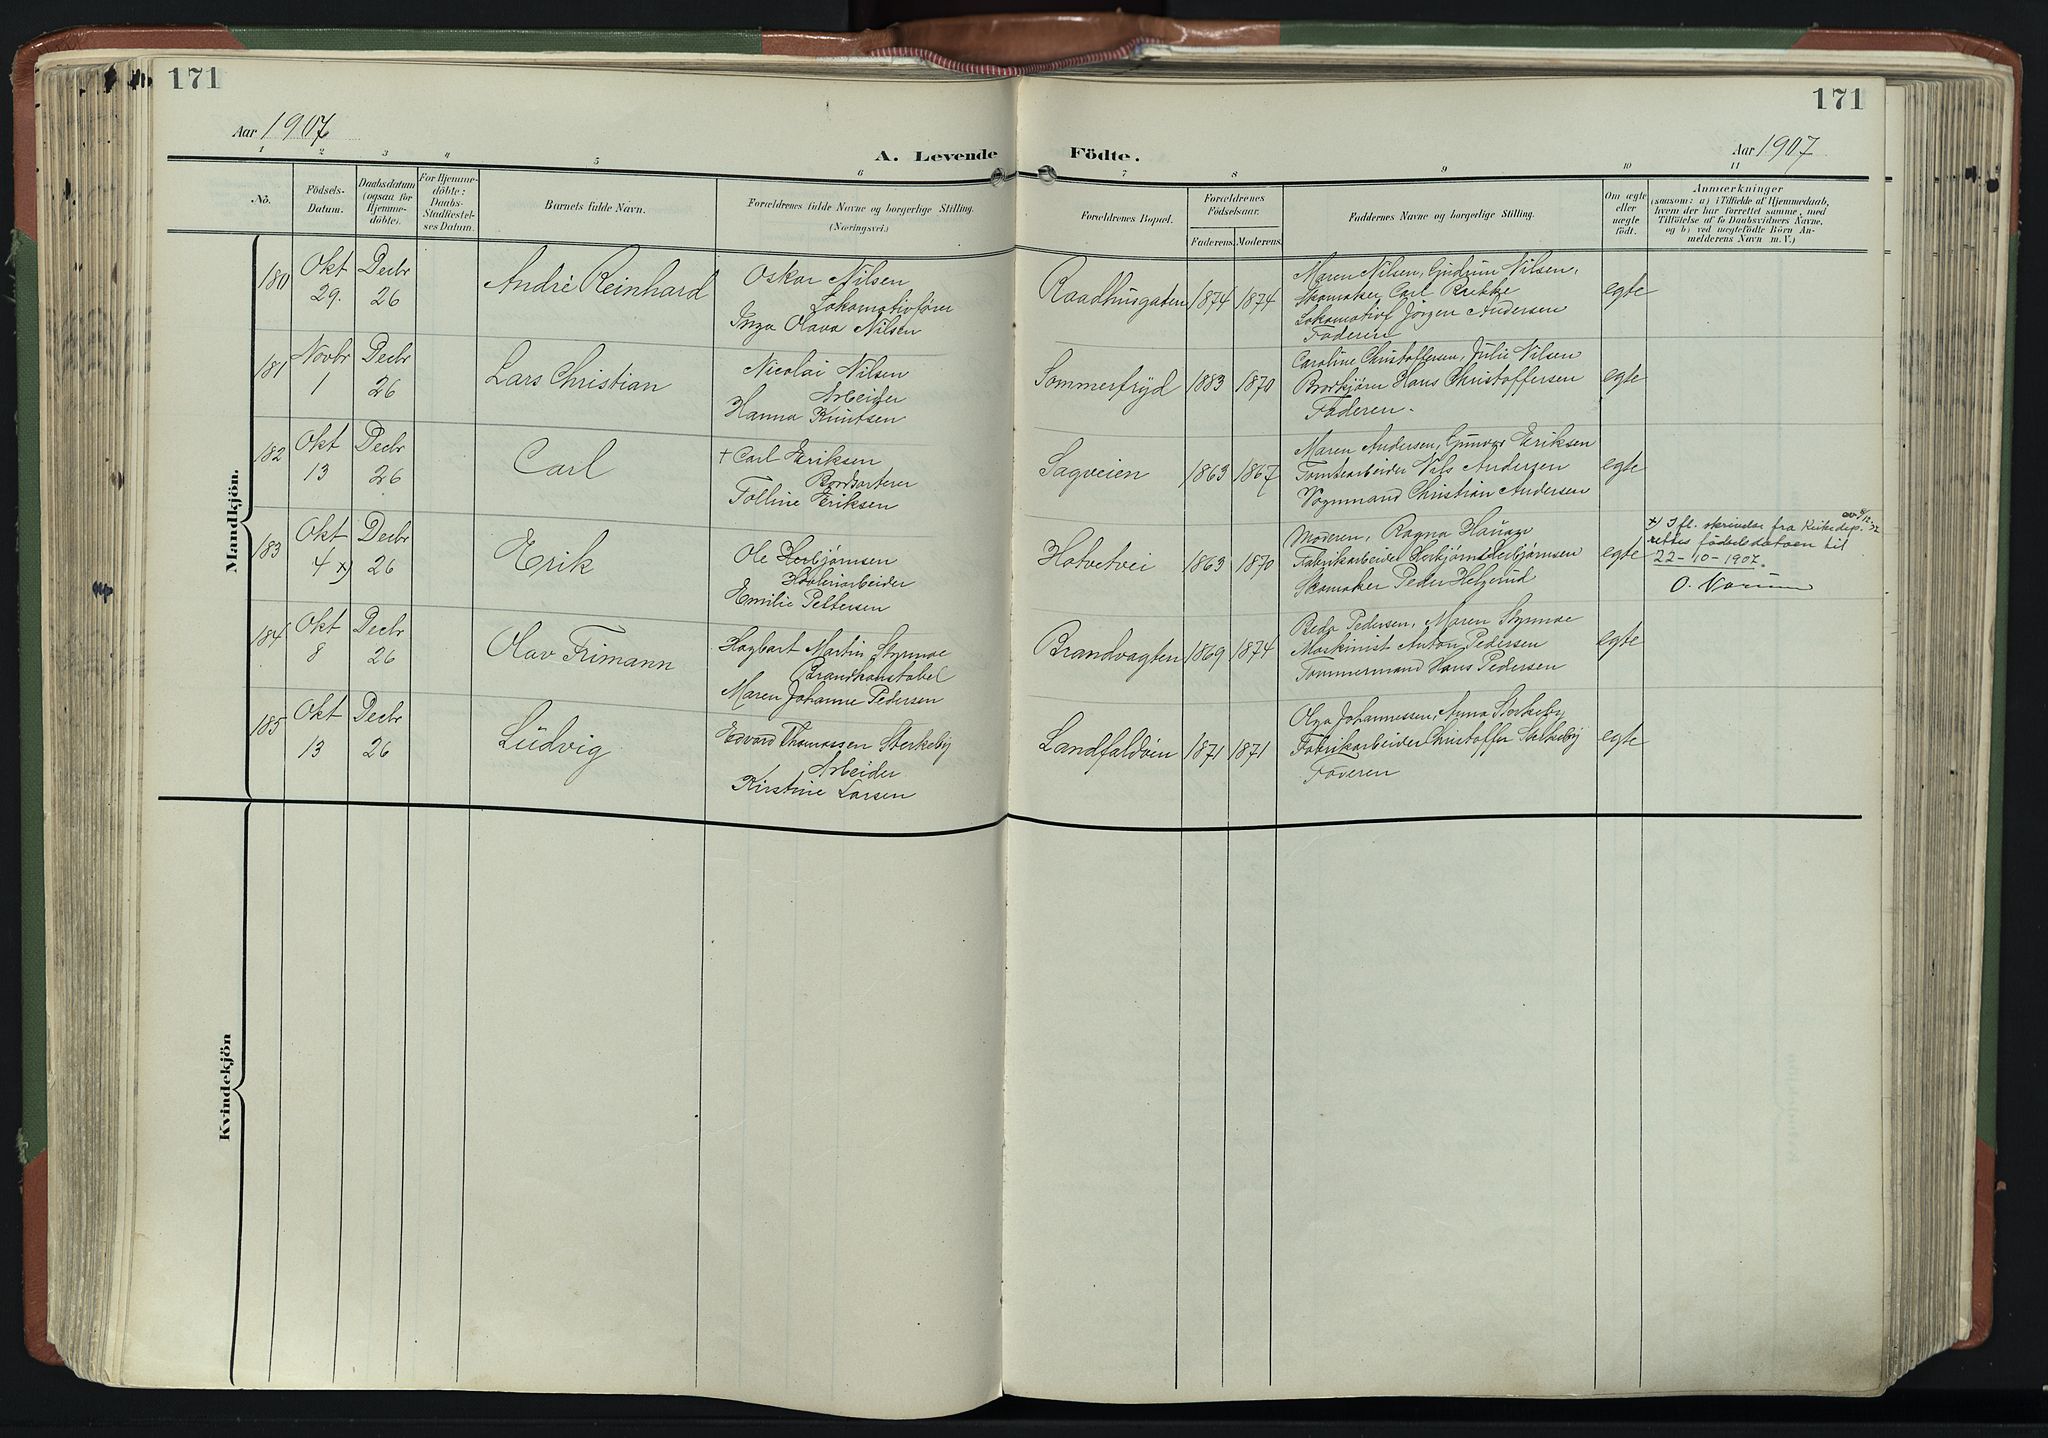 171
171
Aar 1907
A. Levende Födte.
Aar 1907
1 2 3 4 5 6 7 8 9 10 11
No.
Födsels-
Datum.
Daabsdatum
(ogsaa for
Hjemme-
döbte).
For Hjemme-
döbte:
Daabs-
Stadfæstel-
ses Datum.
Barnets fulde Navn.
Forældrenes fulde Navne og borgerlige Stilling.
(Næringsvei.)
Forældrenes Bopæl.
Forældrenes
Födselsaar.
Faderens. Moderens.
Faddernes Navne og borgerlige Stilling.
Om ægte
eller
uægte
födt.
Anmærkninger
(saasom: a) i Tilfælde af Hjemmedaab,
hvem der har forrettet samme, med
Tilföielse af to Daabsvidners Navne,
og b) ved uægtefödte Börn An-
melderens Navn m. V.)
Mandkjön.
180
Okt
29.
Decbr
26
André Reinhard
Oskar Nilsen
Lokomotivfører
Inga Olava Nilsen
Raadhusgaten
1874
1874
Maren Nilsen, Gudrun Nilsen,
Skomaker Carl
Lokomotivf Jörgen Andersen
Faderen
egte
181
Novbr
1
Decbr
26
Lars Christian
Nicolai Nilsen
Arbeider
Hanna Knutsen
Sommerfryd
1883
1870
Caroline Christoffersen, Julie Nilsen
Hans Christoffersen
Faderen.
egte
182
Okt
13
Decbr
26
Carl
+ Carl Eriksen
Bordsorterer
Tolline Eriksen
Sagveien
1863
1867
Maren Andersen, Gunvor Eriksen
Tomtearbeider Nils Andersen
Vognmand Christian Andersen
egte
183
Okt
4 x)
Decbr
26
Erik
Ole Herbjørnsen
Høvleriarbeider
Emilie Pettersen
Hotvetvei
1863
1870
Moderen, Ragna
Fabrikarbeider Herbjørn Herbjørnsen
Skomaker Peder Helgerud
egte
x) Ifl. skrivelse fra Kirkedep. av
rettes födselsdatoen til
22-10-1907.
184
Okt
8
Decbr
26
Olav Frimann
Hagbart Martin Stynnoe
Brandkonstabel
Maren Johanne Pedersen
Brandvagten
1869
1874
Pedersen, Maren Stynnoe
Maskinist Anton Pedersen
Tömmermand Hans Pedersen
egte
185
Okt
13
Decbr
26
Ludvig
Edvard Thomassen Sterkeby
Arbeider
Kirstine Larsen
Landfaldöien
1871
1871
Olga Johannessen, Anna Sterkeby,
Fabrikarbeider Christoffer Sterkeby
Faderen
egte
Kvindekjön